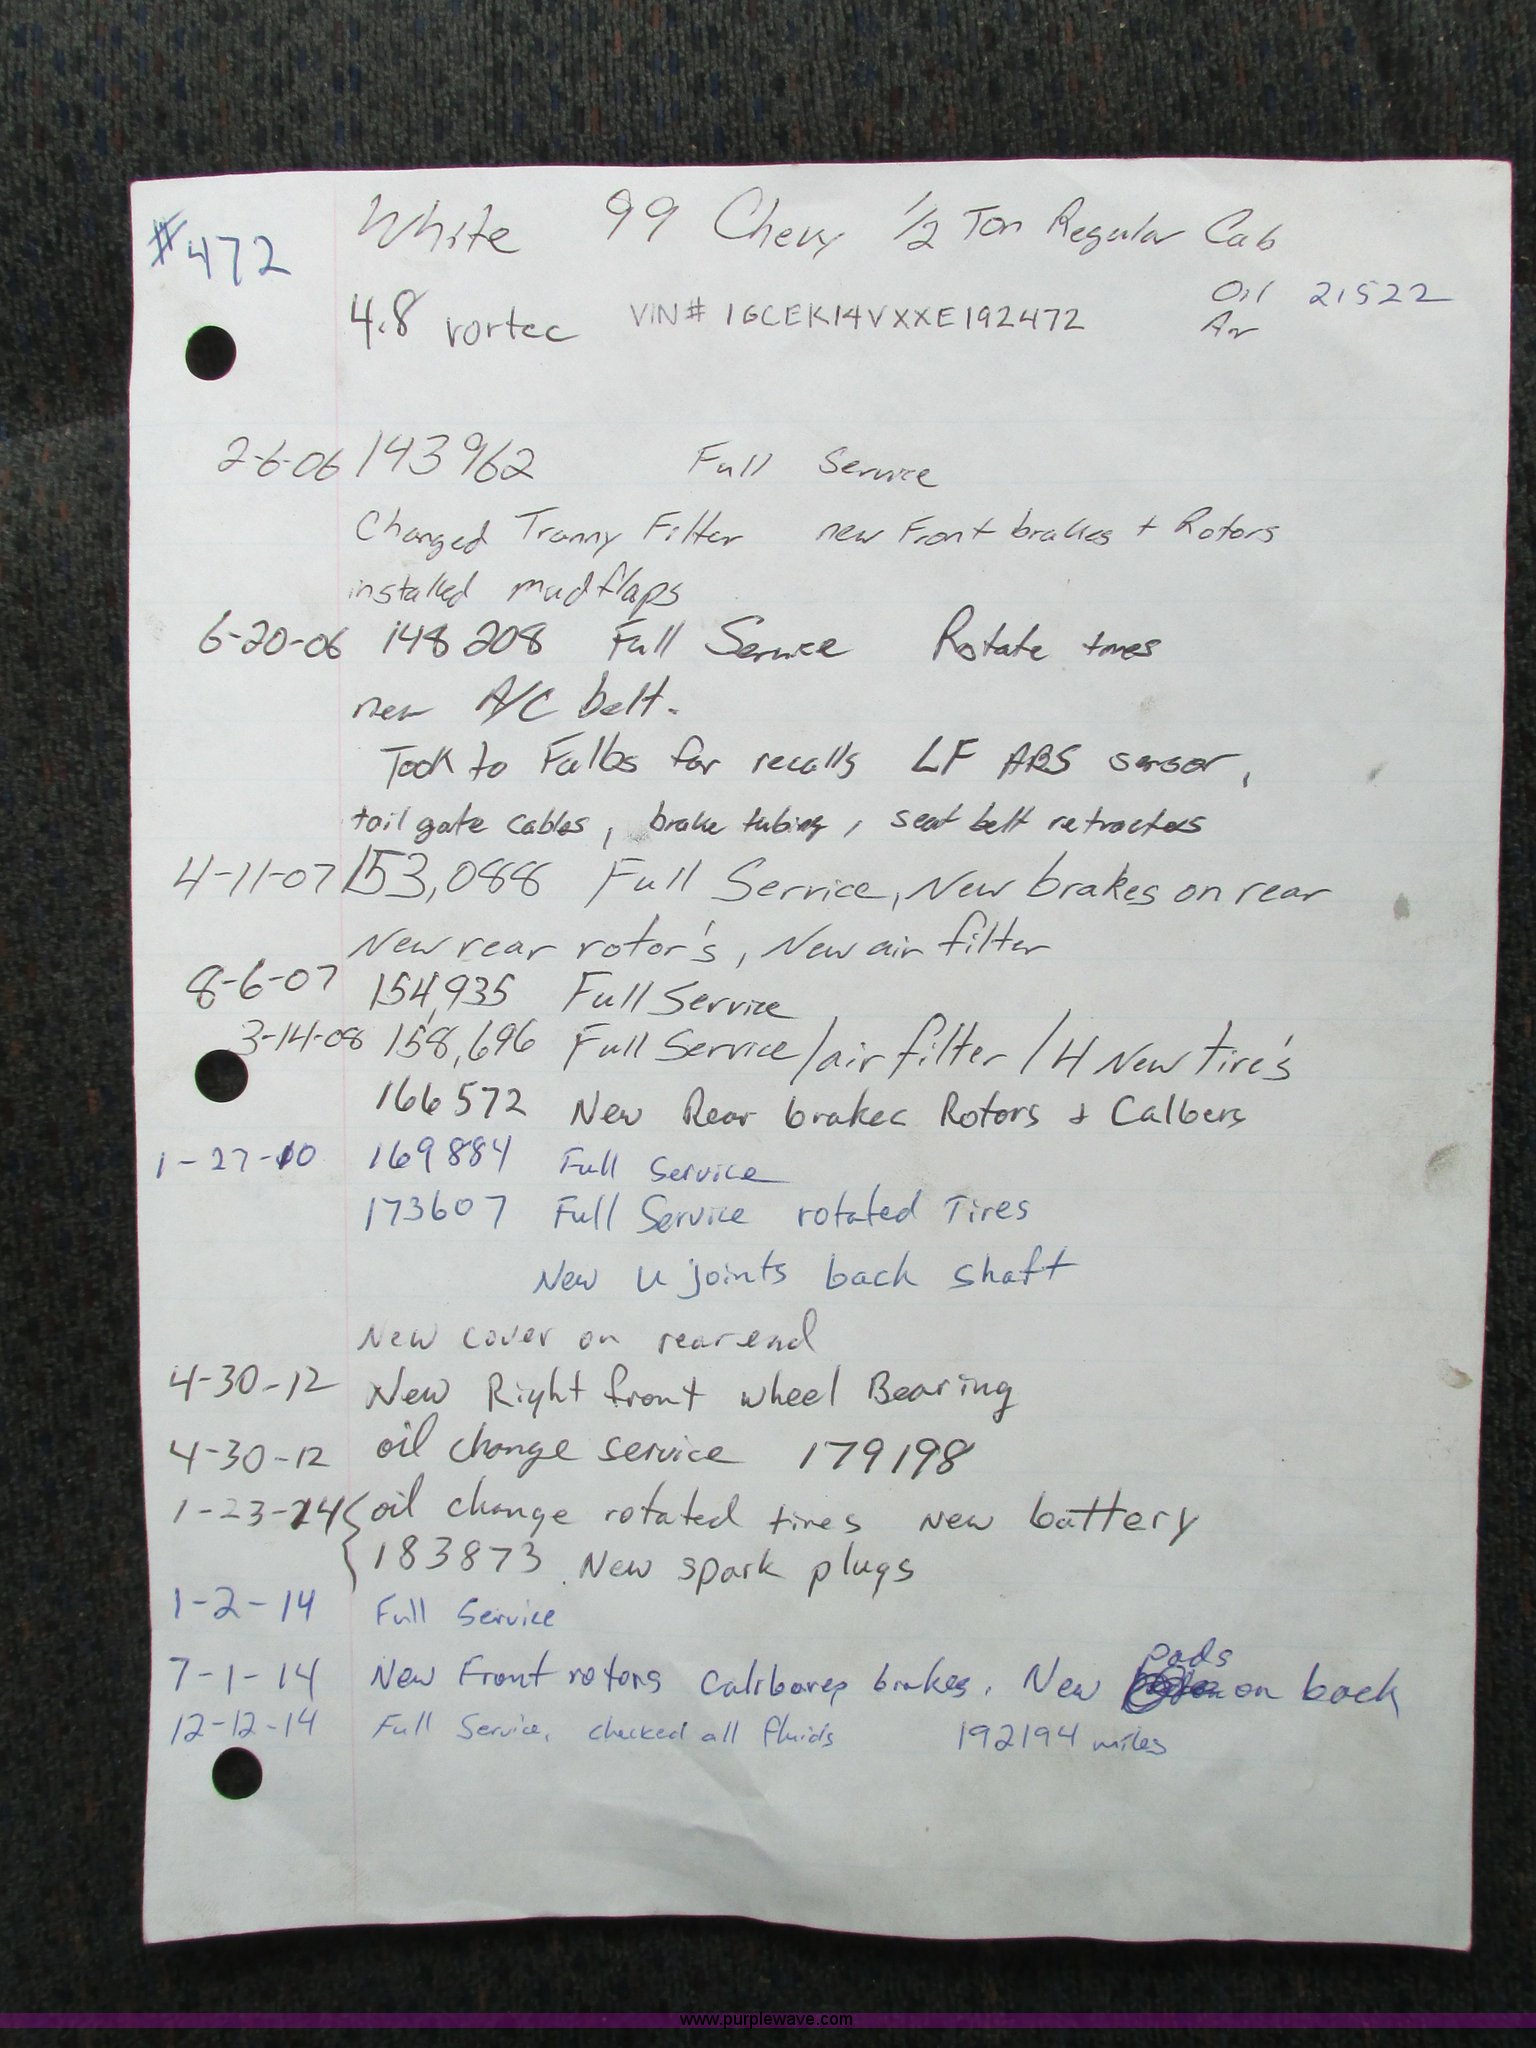 #472
White 99 Chevy 1/2 Ton Regular Cab
Oil 21522
4.8 vortec VIN# 1GCEK14VXXE192472
Air
2-6-06 143962 Full Service
Changed Tranny Filter new Front brakes + Rotors
installed mudflaps
6-20-06 148208 Full Service Rotate tires
new A/C belt.
Took to Falbs for recalls LF ABS sensor,
tail gate cables, brake tubing, seat belt retractors
4-11-07 153,088 Full Service, New brakes on rear
New rear rotor's, New air filter
8-6-07 154,935 Full Service
3-14-08 158,696 Full Service/air filter/4 New tire's
166572 New Rear brakes Rotors + Calbers
1-27-10 169884 Full Service
173607 Full Service rotated Tires
New u joints back shaft
New cover on rearend
4-30-12 New Right front wheel Bearing
4-30-12 oil change service 179198
1-23-14 oil change rotated tires New battery
183873 New spark plugs
1-2-14 Full Service
pads
7-1-14 New Front rotors brakes, New on back
12-12-14 Full Service, checked all fluids 192194 miles
www.purplewave.com